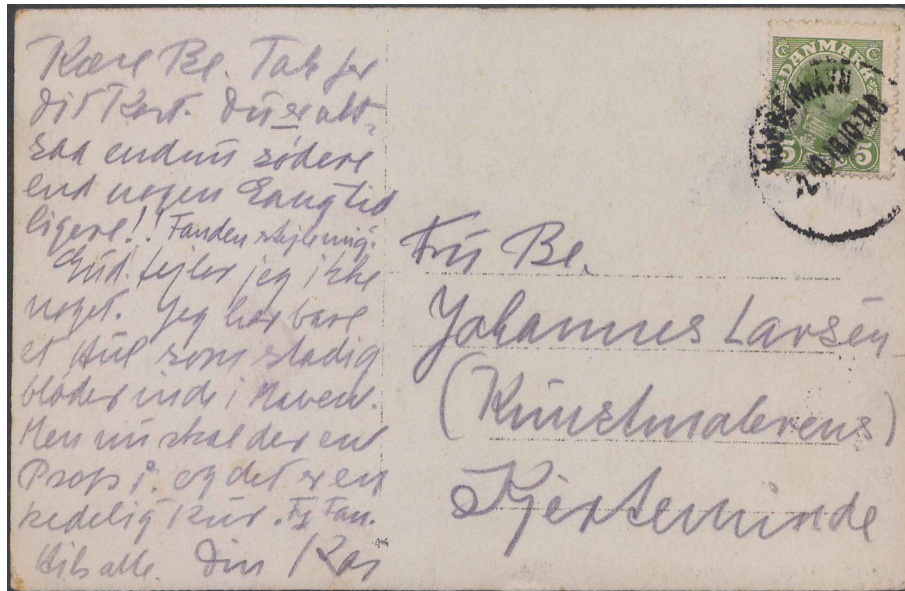 Kære Be. Tak for
dit Kort. Du er alt-
saa endnu sødere
end nogen Gang tid
ligere!! Fanden stejle mig.
Gud. fejler jeg ikke
noget. Jeg har bare
et Hul som stadig
bløder inde i Maven.
Men nu skal der en
Prop i. og det er en
kedelig Kur. Fy Fan.
Hils alle. Din Kaj
DANMARK
5 5
KJØBENHAVN
Fru Be.
Johannes Larsen
(Kunstmalerens)
Kjerteminde